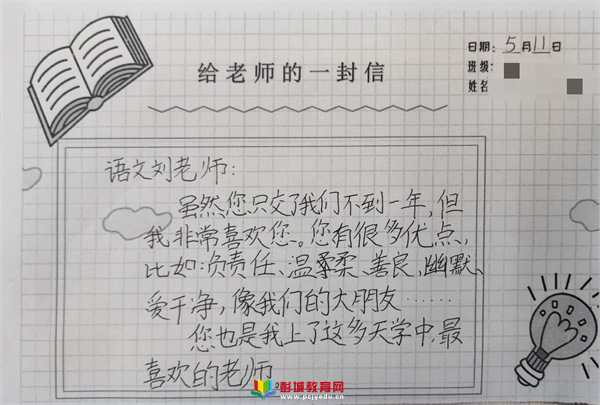 给老师的一封信
日期：5月11日
班级：
姓名
语文刘老师：
虽然您只交了我们不到一年，但
我非常喜欢您。您有很多优点，
比如：负责任、温柔、善良、幽默、
爱干净，像我们的大朋友……
您也是我上了这多天学中，最
喜欢的老师
彭城教育网
www.pcjyedu.cn